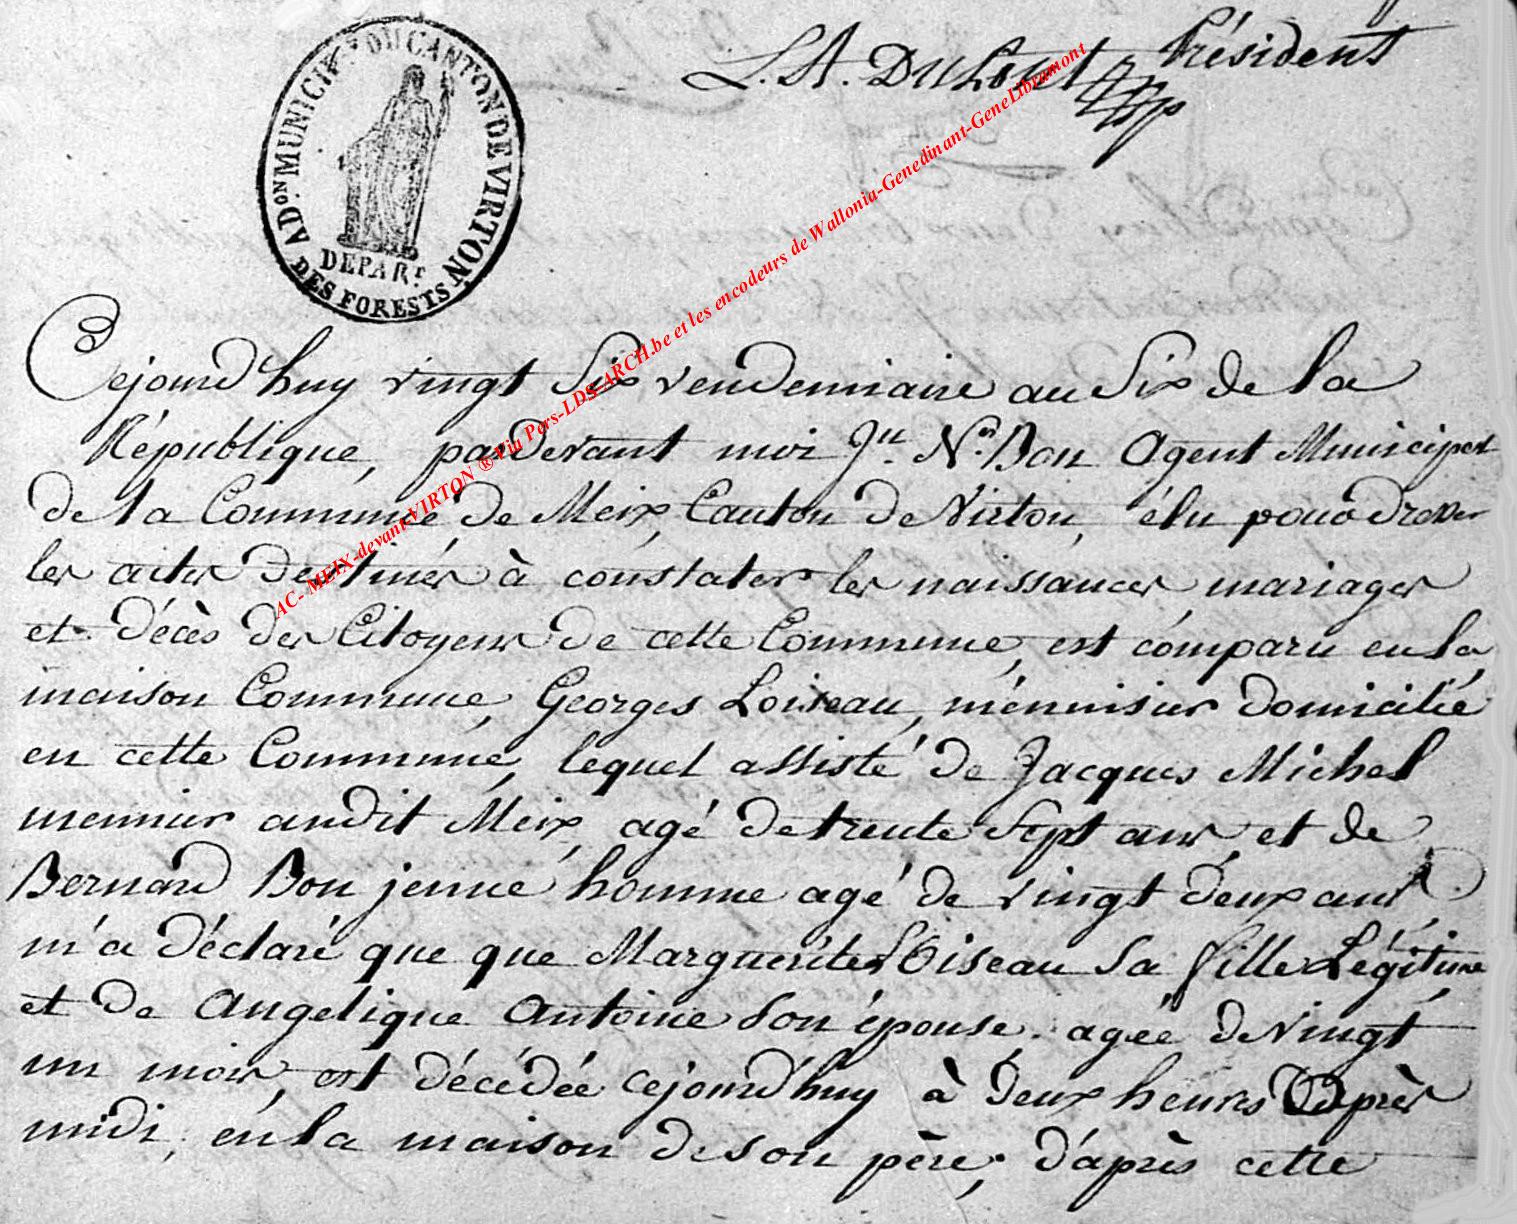 L. A. Dutout Président
ADON. MUNICIP. DU CANTON DE VIRTON
DEPART.
DES FORESTS
AC- MEIX-devant-VIRTON ® Via Pers-LDS-ARCH.be et les encodeurs de Wallonia-Genedinant-GeneLibramont
Cejourd'huy vingt Six vendemiaire an Six de la
République, pardevant moi Jn. Ns. Bon Agent Municipal
de la Commune de Meix, Canton de Virton, élu pour dresser
les actes destinés à constater les naissances mariages
et décès des Citoyens de cette Commune, est comparu en la
maison Commune, Georges Loiseau,ménuisier domicilié
en cette Commune, lequel assisté de Jacques Michel
meunier audit Meix, agé de trente Sept ans, et de
Bernard Bon jeune homme agé de vingt deux ans
m'a déclaré que que Marguerite LOiseau Sa fille Légitime
et de Angelique Antoine Son épouse, agée de vingt
un mois, est décédée cejourd'huy à deux heures après
midi, en la maison de son père; d'après cette